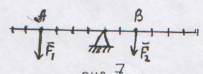 A B
F₁ F₂
рис 7